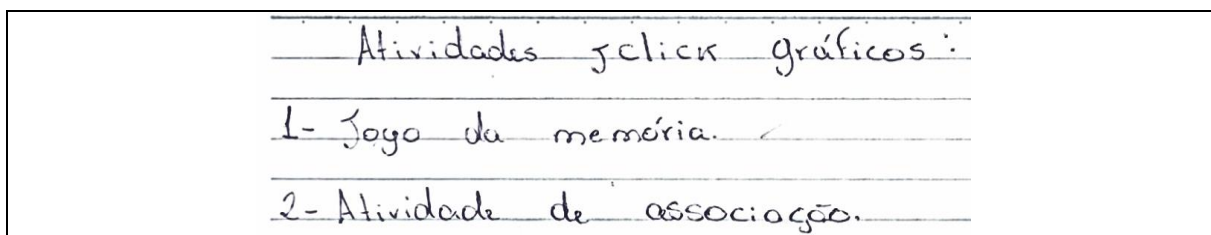 Atividades jclick gráficos:
1- Jogo da memória.
2- Atividade de associação.